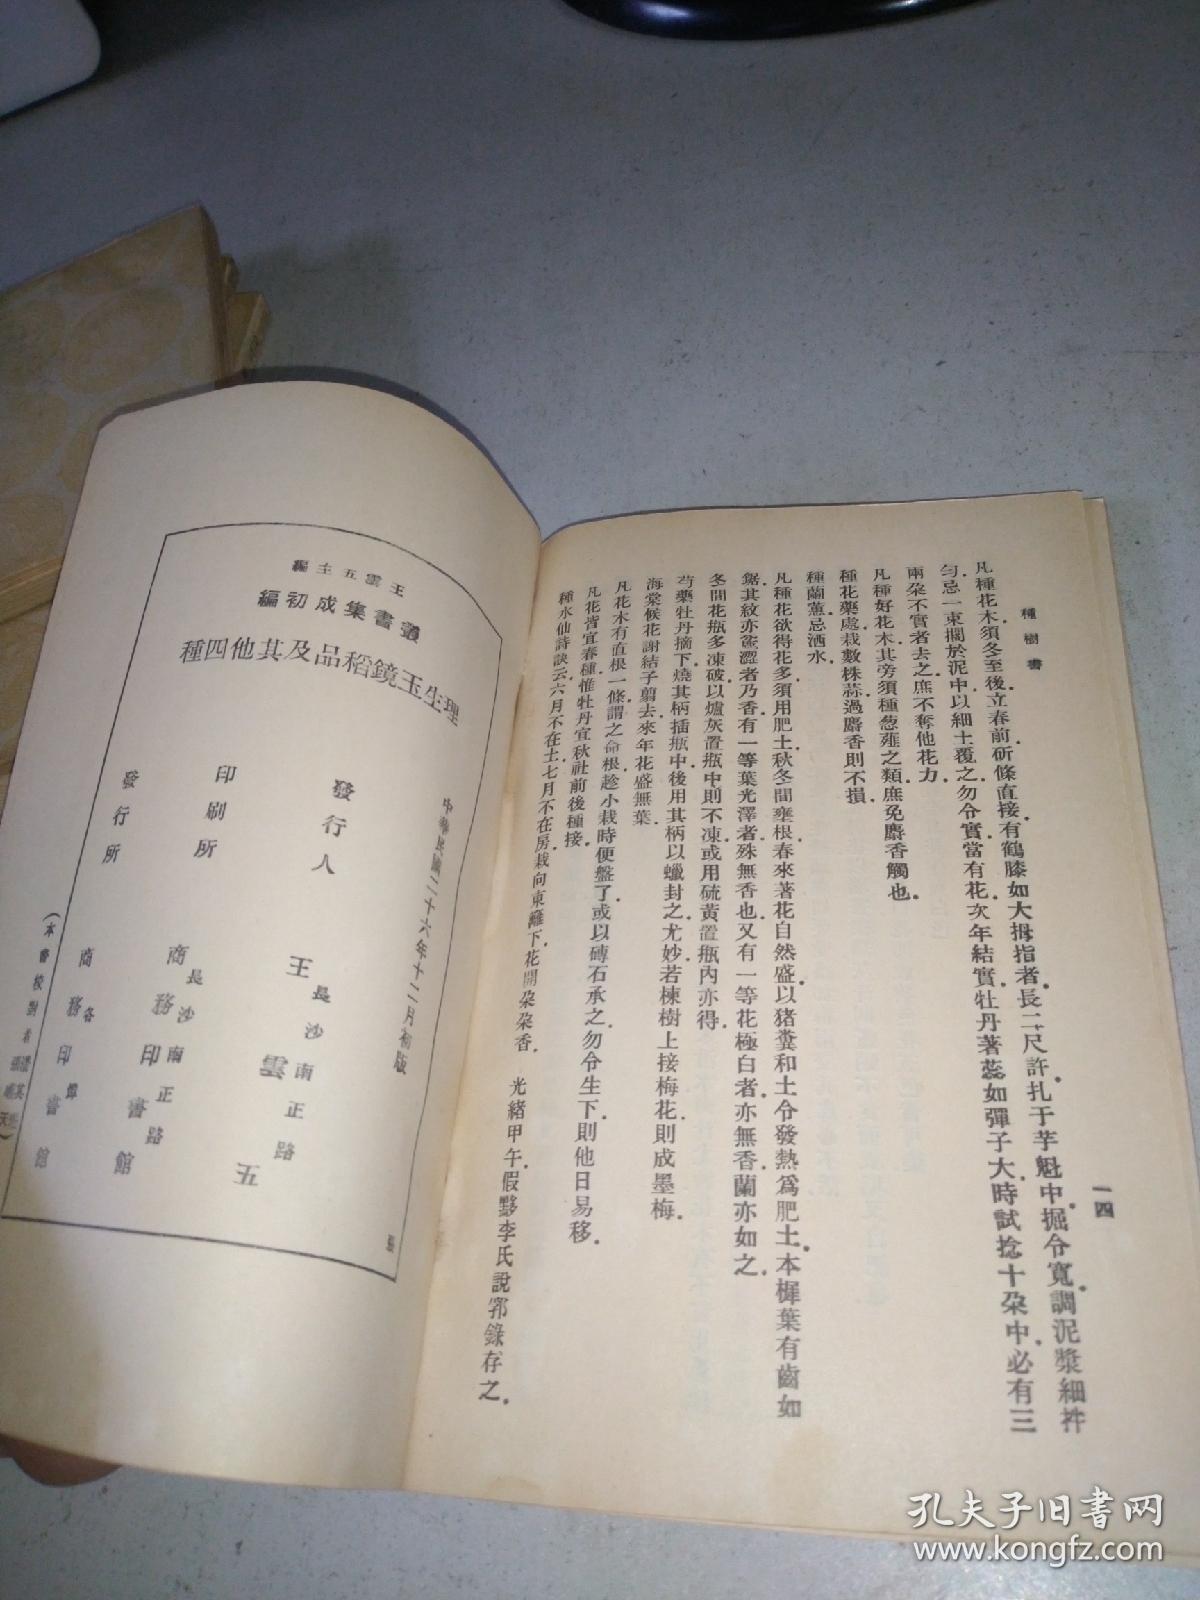 種樹書
一四
凡種花木須冬至後立春前斫條直接有鶴膝如大拇指者長二尺許扎于芋魁中掘令寬調泥漿細拌
勻忌一東擱於泥中以細土覆之勿令實當有花次年結實牡丹著蕊如彈子大時試捻十朶中必有三
兩朶不實者去之庶不奪他花力
凡種好花木其旁須種葱薤之類庶免麝香觸也
種花藥處栽數株蒜過麝香則不損
種蘭蕙忌洒水
凡種花欲得花多須用肥土秋冬間壅根春來著花自然盛以猪糞和土令發熱爲肥土木樨葉有齒如
鋸其紋亦麤澀者乃香有一等葉光澤者殊無香也又有一等花極白者亦無香蘭亦如之
冬間花瓶多凍破以爐灰置瓶中則不凍或用硫黃置瓶內亦得
芍藥牡丹摘下燒其柄插瓶中後用其柄以蠟封之尤妙若楝樹上接梅花則成墨梅
海棠候花謝結子剪去來年花盛無葉
凡花木有直根一條謂之命根趁小栽時便盤了或以磚石承之勿令生下則他日易移
凡花皆宜春種惟牡丹宜秋社前後種接
種水仙詩訣云六月不在土七月不在房栽向東籬下花開朶朶香
光緒甲午假黟李氏說郛錄存之
王雲五主編
叢書集成初編
理生玉鏡稻品及其他四種
中華民國二十六年十二月初版
發行人
王雲五
長沙南正路
印刷所
商務印書館
長沙南正路
發行所
商務印書館
各埠
(本書校對者
孔夫子旧书网
www.kongfz.com